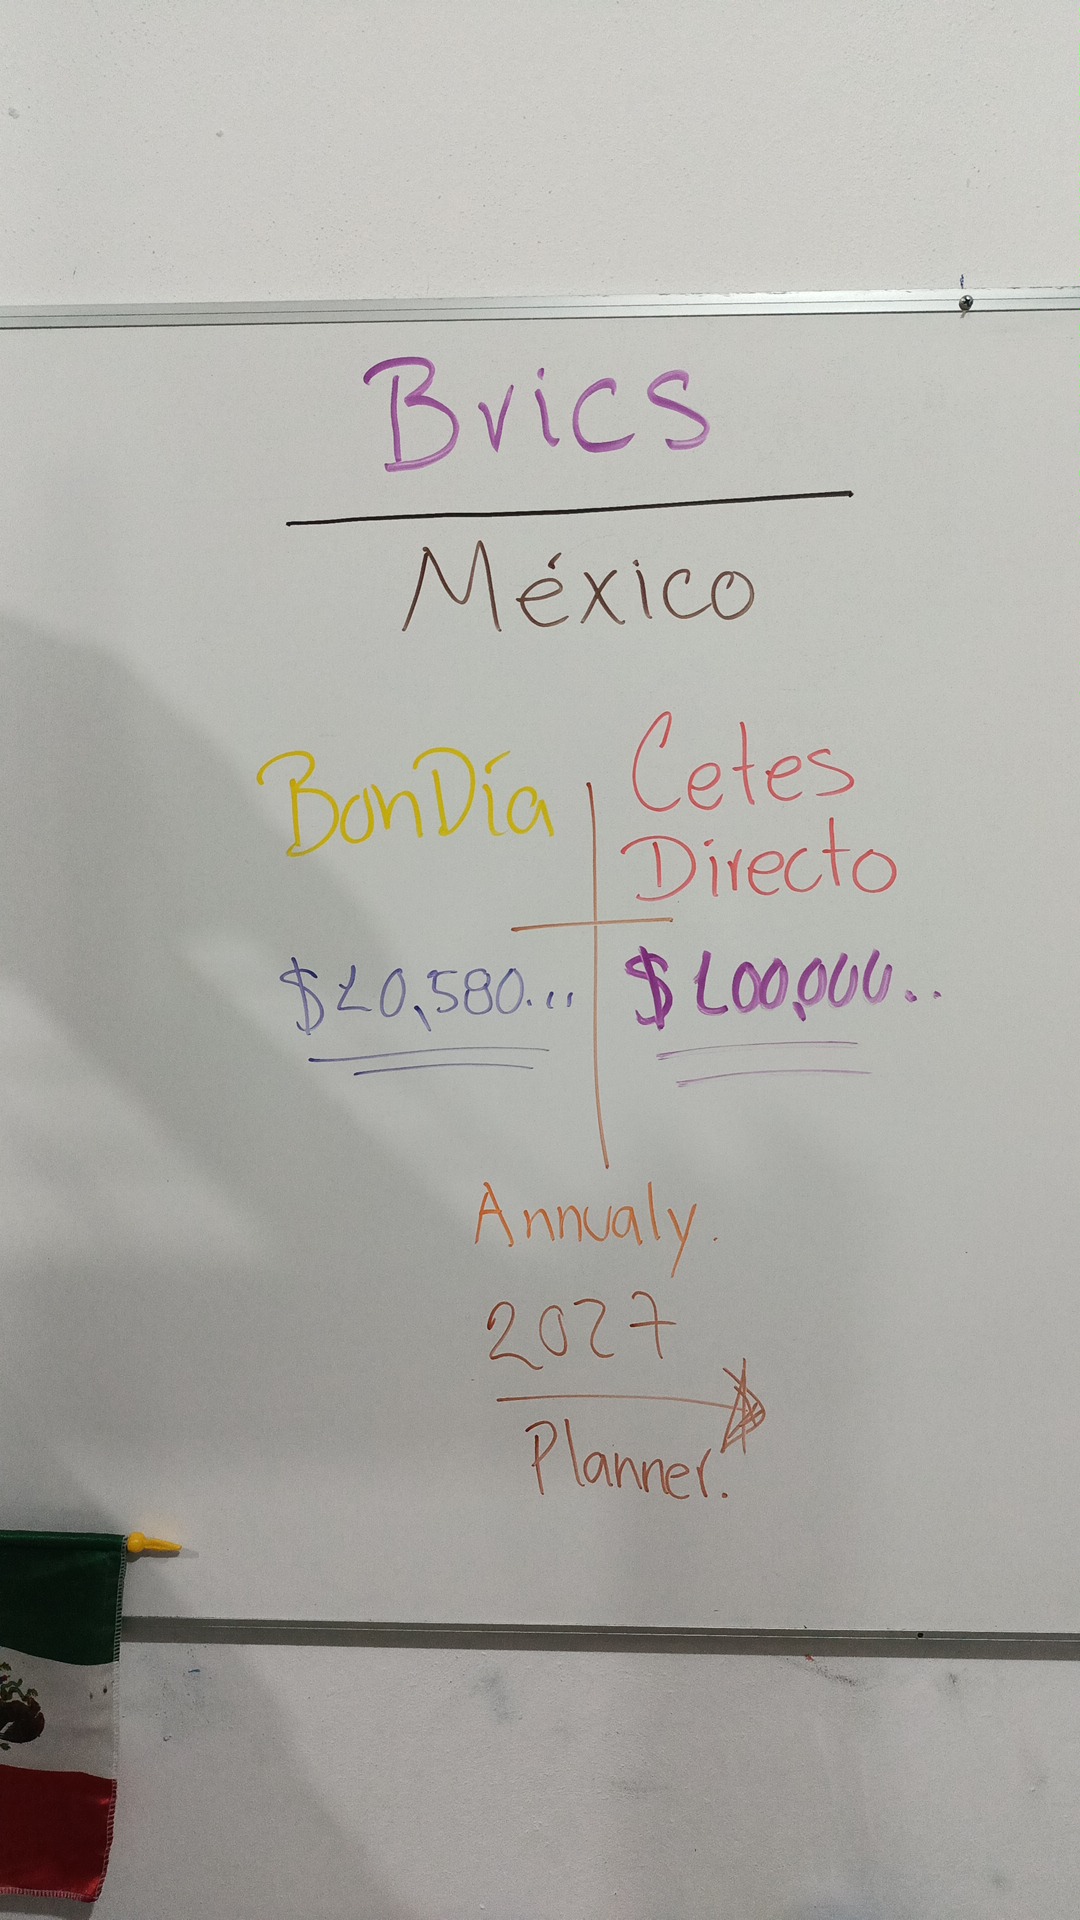 Brics
México
BonDía
Cetes
Directo
$10,580...
$100,000..
Annualy.
2027
Planner.